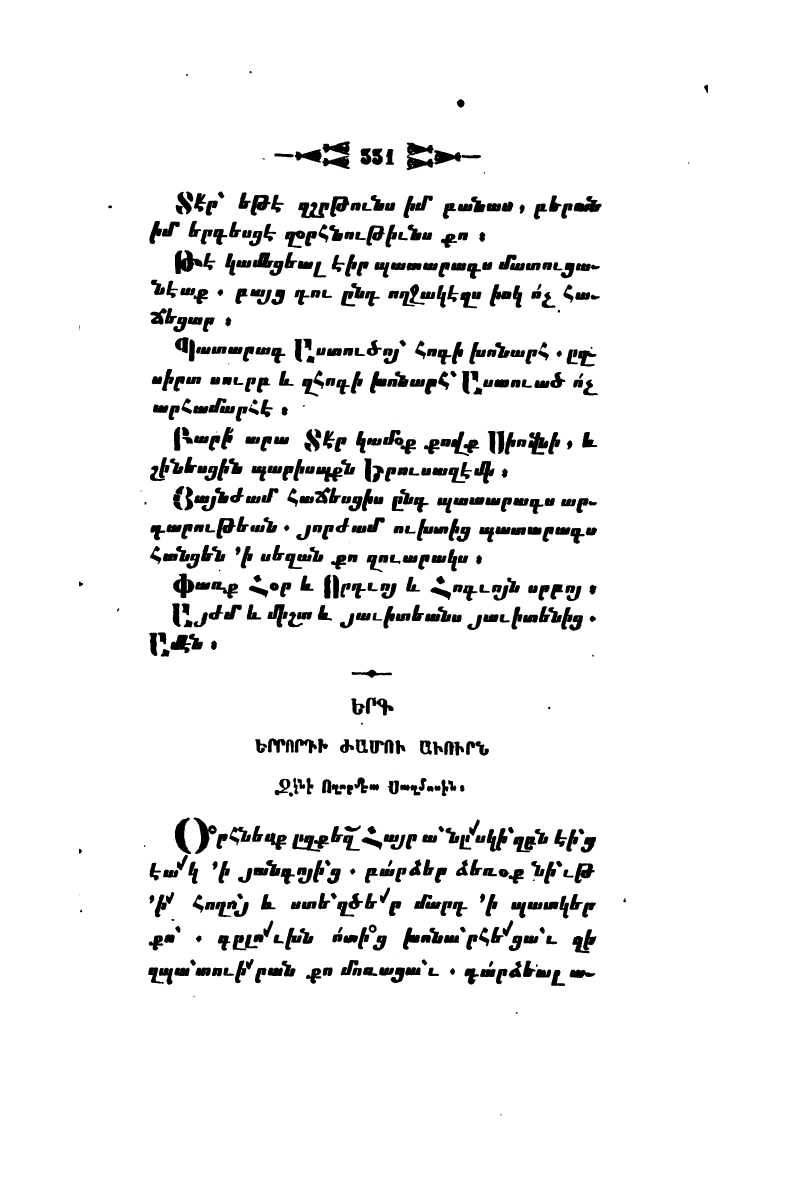 331
Տէր՝ եթէ զշրթունս իմ բանաս, բերան
իմ երգեսցէ զօրհնութիւնս քո ։
Թէ կամեցեալ էիր պատարագս մատուցա-
նէաք . բայց դու ընդ ողջակէզս իսկ ո՛չ հա-
ճեցար ։
Պատարագ Աստուծոյ՝ հոգի խոնարհ . ըզ-
սիրտ սուրբ և զհոգի խոնարհ՝ Աստուած ո՛չ
արհամարհէ ։
Բարի՛ արա Տէր կամօք քովք Սիովնի, և
շինեսցին պարիսպքն Երուսաղէմի ։
Յայնժամ հաճեսցիս ընդ պատարագս ար-
դարութեան . յորժամ ուխտից պատարագս
հանցեն ՚ի սեղան քո զուարակս ։
Փառք Հօր և Որդւոյ և Հոգւոյն սրբոյ ։
Այժմ և միշտ և յաւիտեանս յաւիտենից .
Ամէն ։
ԵՐԳ
ԵՐՐՈՐԴԻ ԺԱՄՈՒ ԱՒՈՒՐՆ
Զկնի Ողորմեա Սաղմոսին։
Օրհնեմք ըզքեզ Հայր ա՝նըսկի՝զբն էի՝ց
էակ ՚ի յանգոյի՝ց . բա՛րձեր ձեռօք նի՝ւթ
՚ի հողո՝յ և ստե՝ղծեր մարդ ՚ի պատկեր
քո՝ . գըլուխն ո՛տից խոնա՝րհեցա՝ւ զի
զպա՝տուիրան քո մոռացա՝ւ . գա՛րձեալ ա-